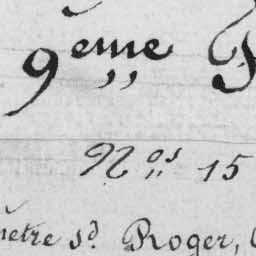 9ème
Nos 15
mètre sd. Roger,